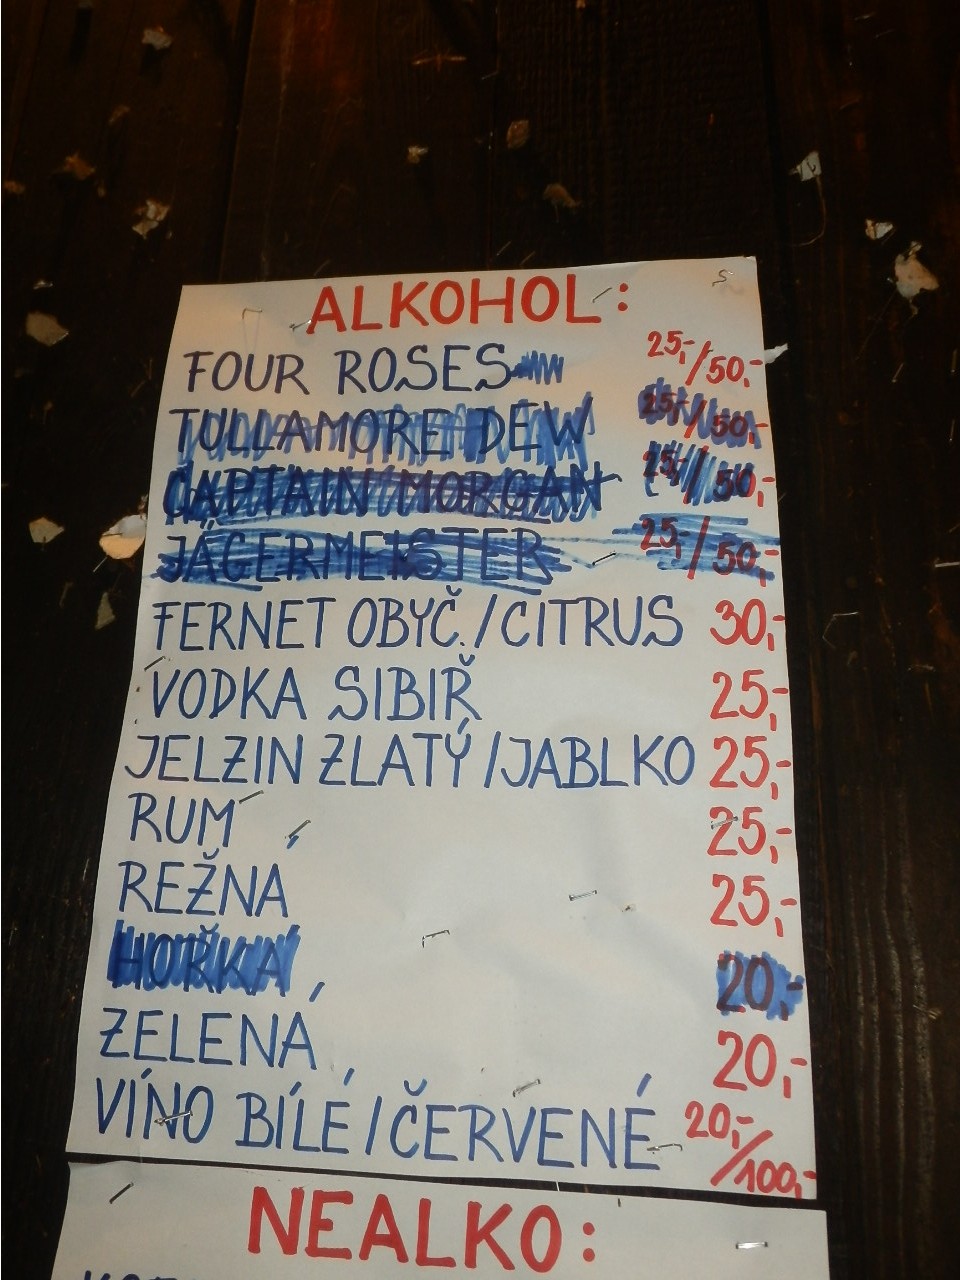 ALKOHOL:
FOUR ROSES 25,-/50,-
TULLAMORE DEW 25,-/50,-
CAPTAIN MORGAN 25,-/50,-
JÄGERMEISTER 25,-/50,-
FERNET OBYČ./CITRUS 30,-
VODKA SIBIŘ 25,-
JELZIN ZLATÝ/JABLKO 25,-
RUM 25,-
REŽNÁ 25,-
HOŘKÁ 20,-
ZELENÁ 20,-
VÍNO BÍLÉ/ČERVENÉ 20,-/100,-
NEALKO: